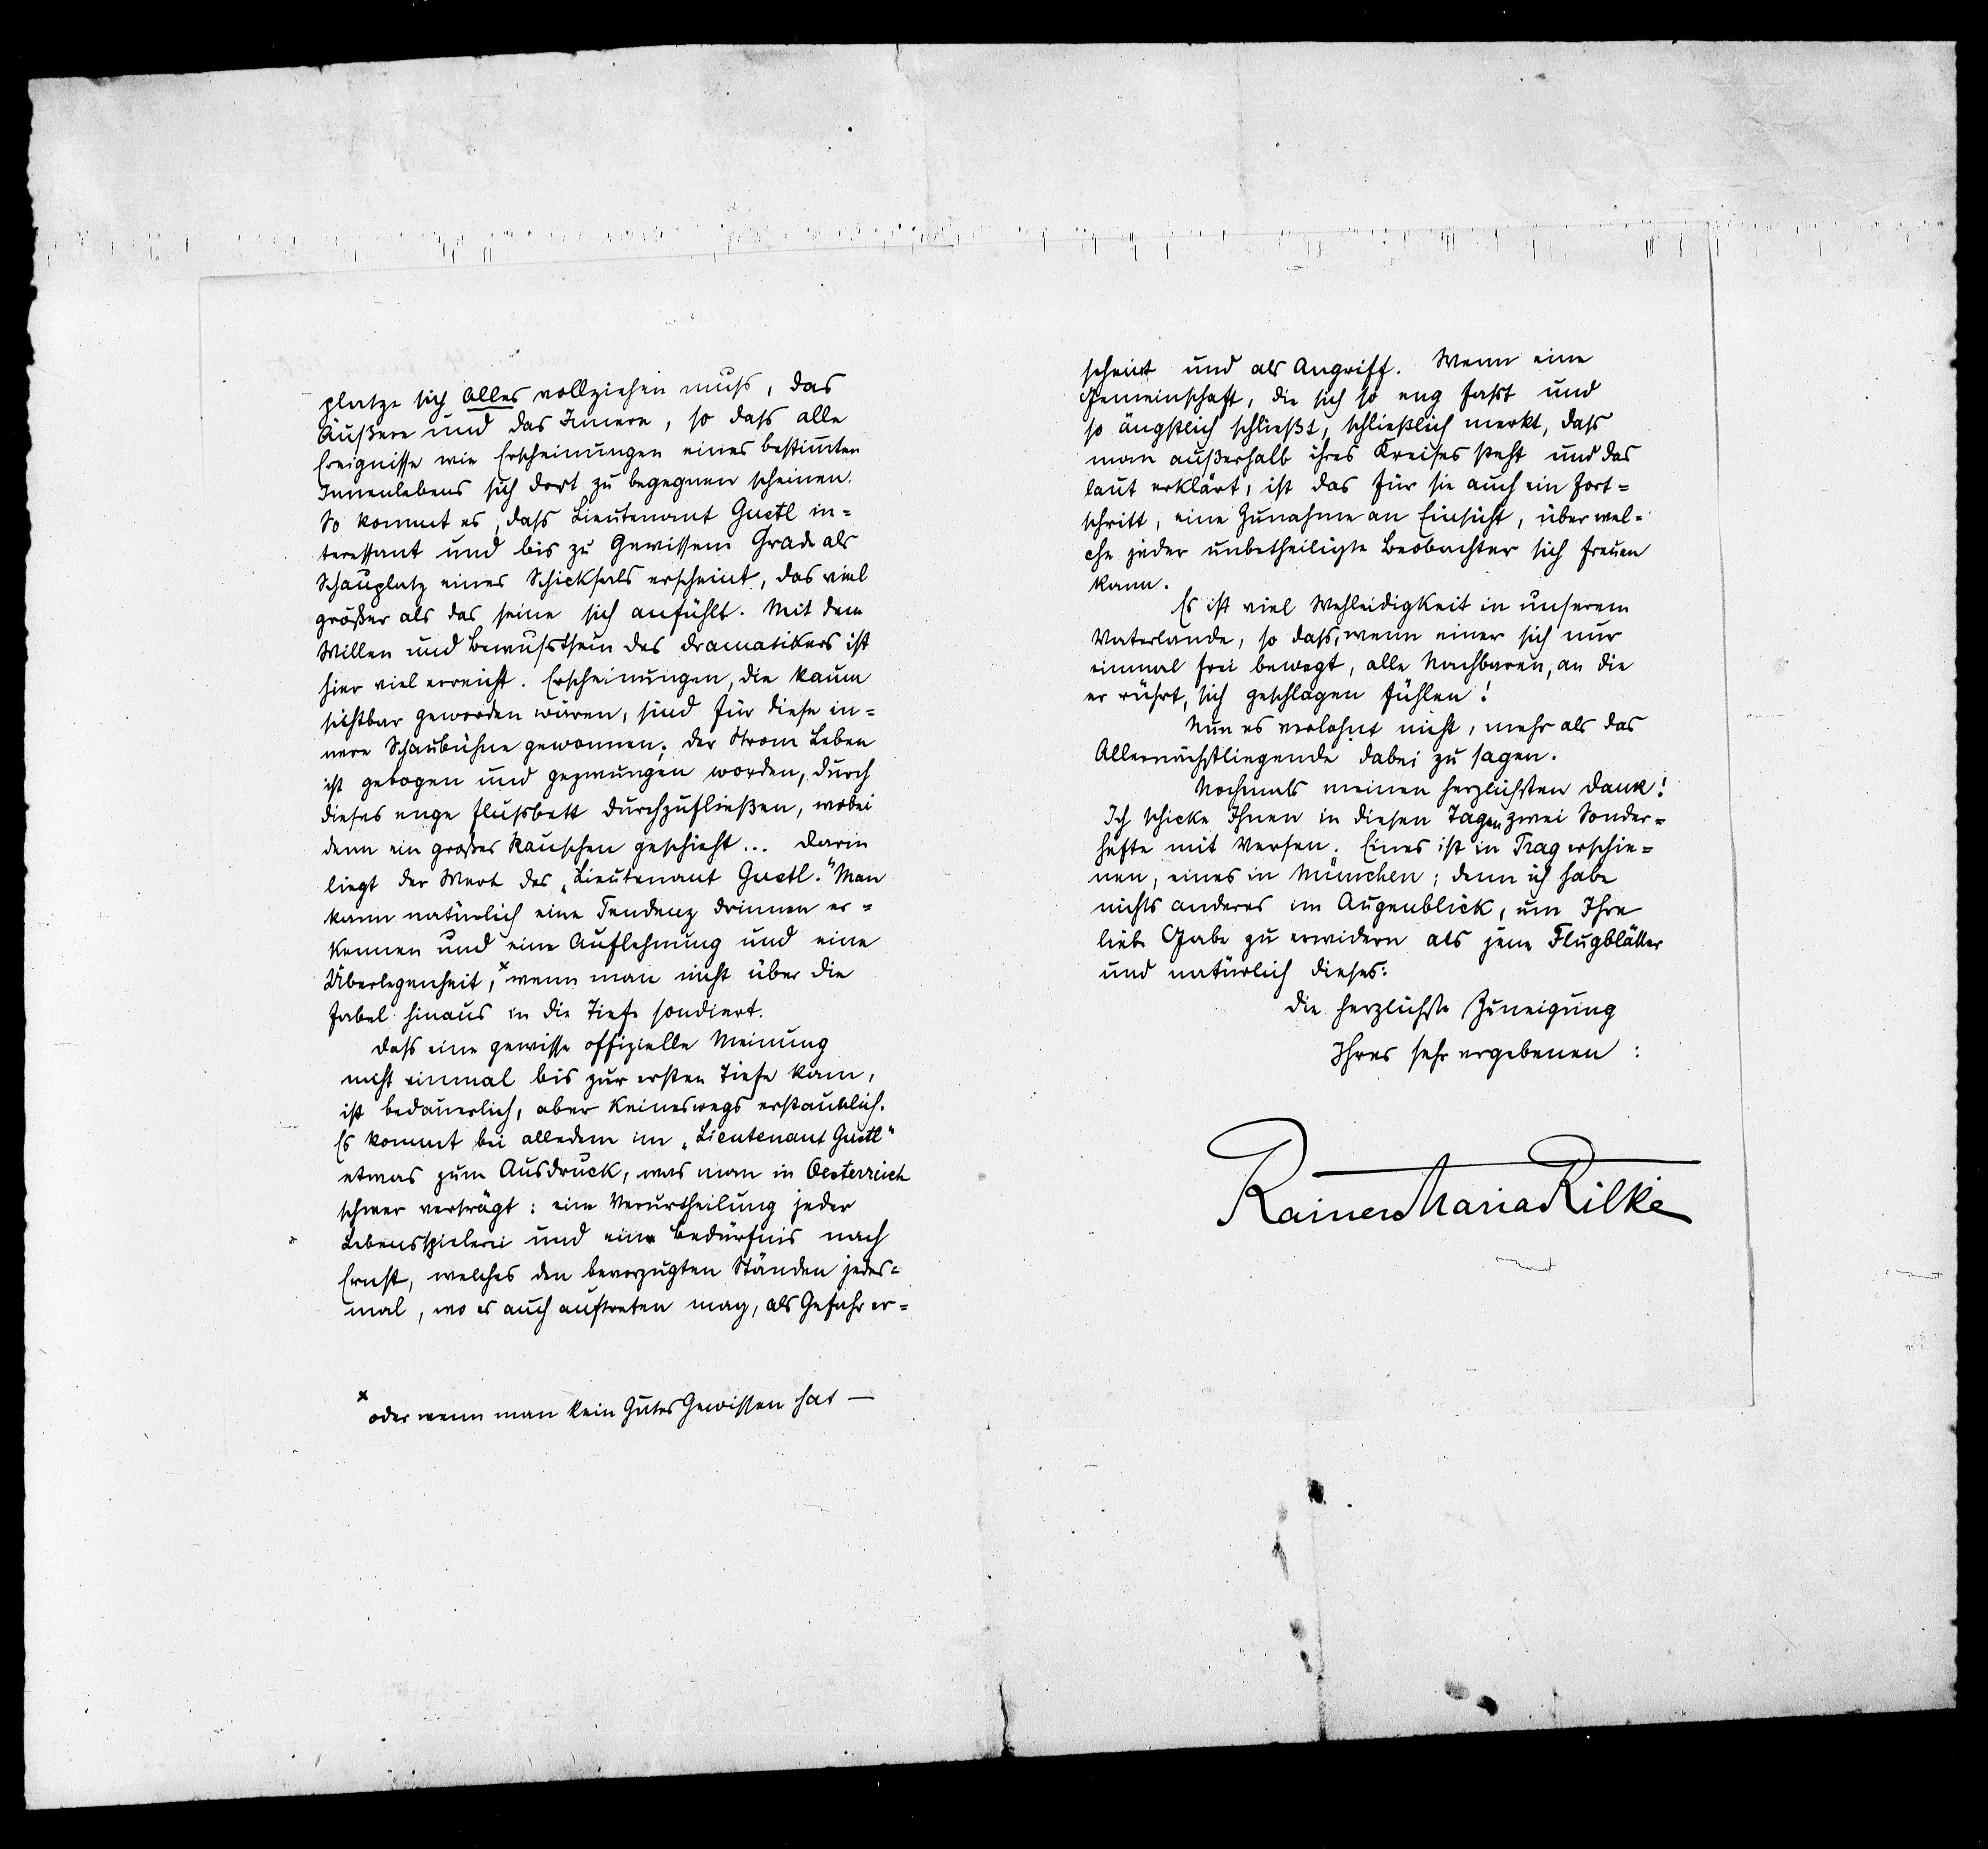 platze sich Alles vollziehen muss, das
Äußere und das Innere, so dass alle
Ereignisse wie Erscheinungen eines bestimmten
Innenlebens sich dort zu begegnen scheinen.
So kommt es, dass Lieutenant Gustl in=
teressant und bis zu Gewissem Grade als
Schauplatz eines Schicksals erscheint, das viel
größer als das seine sich anfühlt. Mit dem
Willen und Bewusstsein des Dramatikers ist
hier viel erreicht. Erscheinungen, die kaum
sichtbar geworden wären, sind für diese in=
nere Schaubühne gewonnen; der Strom Leben
ist gebogen und gezwungen worden, durch
dieses enge Flussbett durchzufließen, wobei
denn ein großes Rauschen geschieht... Darin
liegt der Wert des „Lieutenant Gustl." Man
kann natürlich eine Tendenz drinnen er=
kennen und eine Auflehnung und eine
Überlegenheit,x wenn man nicht über die
Fabel hinaus in die Tiefe sondiert.
Dass eine gewisse offizielle Meinung
nicht einmal bis zur ersten Tiefe kam,
ist bedauerlich, aber keineswegs erstaunlich.
Es kommt bei alledem im „Lieutenant Gustl"
etwas zum Ausdruck, was man in Oesterreich
schwer verträgt: eine Verurtheilung jeder
Lebensspielerei und ein Bedürfnis nach
Ernst, welches den bevorzugten Ständen jedes=
mal, wo es auch auftreten mag, als Gefahr er=
x oder wenn man kein Gutes Gewissen hat —
scheint und als Angriff. Wenn eine
Gemeinschaft, die sich so eng fasst und
so ängstlich schließt, schließlich merkt, dass
man außerhalb ihres Kreises steht und das
laut erklärt, ist das für sie auch ein Fort=
schritt, eine Zunahme an Einsicht, über wel=
che jeder unbetheiligte Beobachter sich freuen
kann.
Es ist viel Wehleidigkeit in unserem
Vaterlande, so dass, wenn einer sich nur
einmal frei bewegt, alle Nachbaren, an die
er rührt, sich geschlagen fühlen!
Nun es verlohnt nicht, mehr als das
Allernächstliegende dabei zu sagen.
Nochmals meinen herzlichsten Dank!
Ich schicke Ihnen in diesen Tagen zwei Sonder=
hefte mit Versen. Eines ist in Prag erschie=
nen, eines in München; denn ich habe
nichts anderes im Augenblick, um Ihre
liebe Gabe zu erwidern als jene Flugblätter
und natürlich dieses:
die herzlichste Zuneigung
Ihres sehr ergebenen:
Rainer Maria Rilke